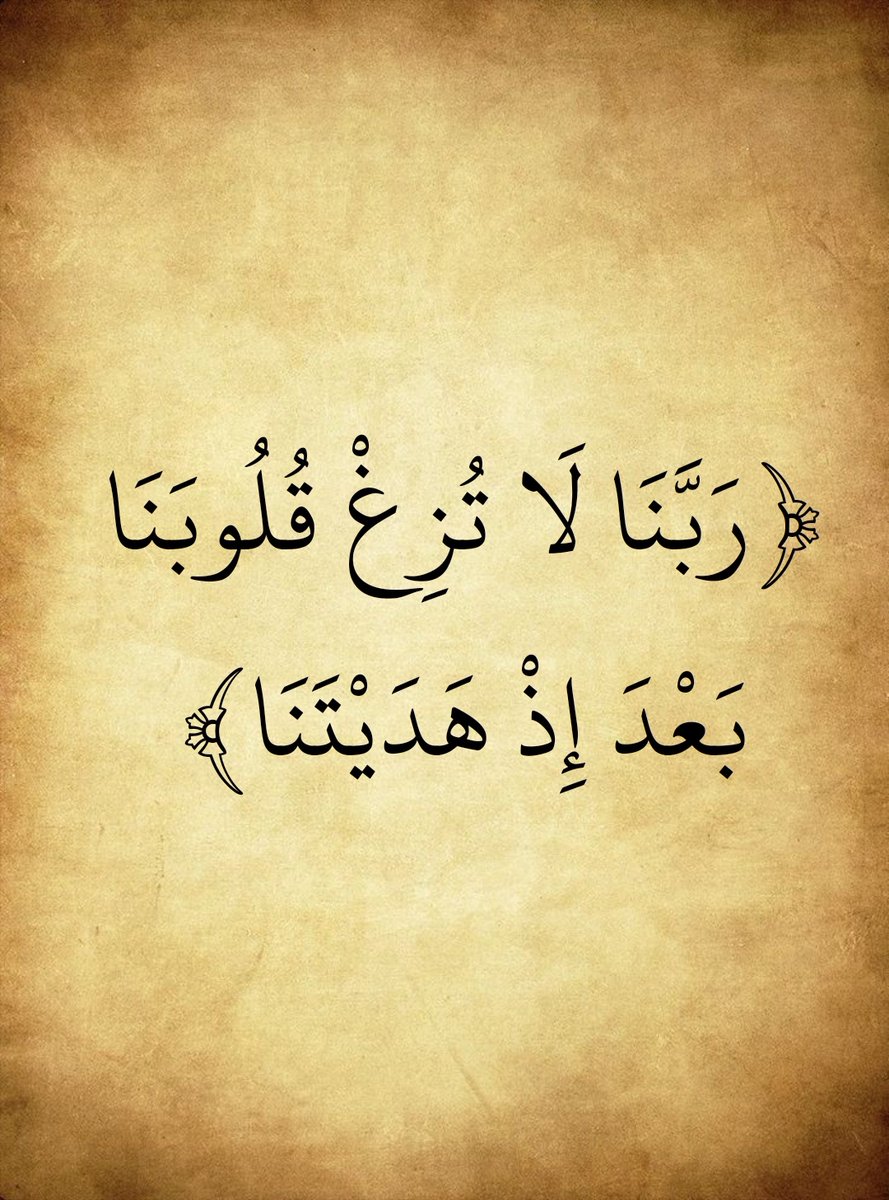 ﴿رَبَّنَا لَا تُزِغْ قُلُوبَنَا
بَعْدَ إِذْ هَدَيْتَنَا﴾